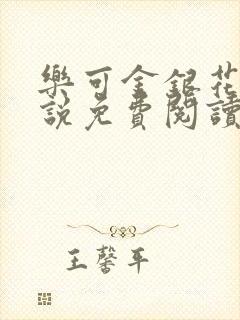 樂可金銀花
說免費閱讀
王馨平